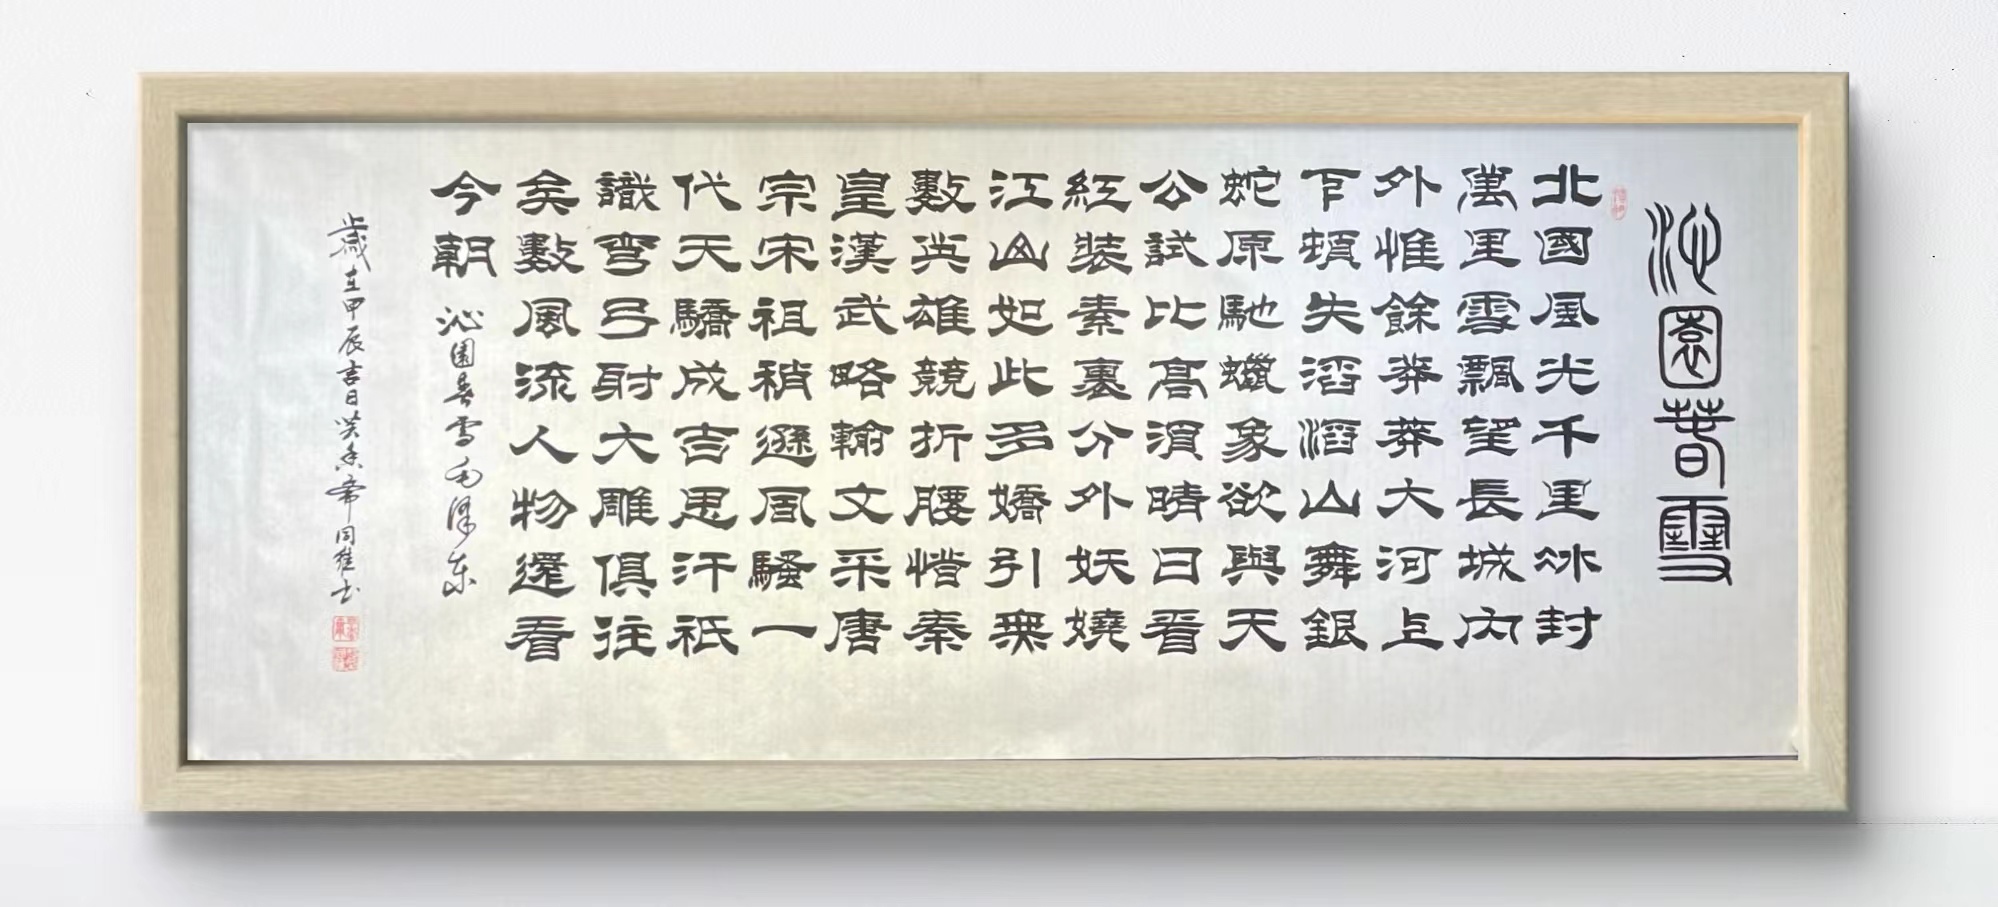 沁園春雪
北國風光千里冰封
萬里雪飄望長城內
外惟餘莽莽大河上
下頓失滔滔山舞銀
蛇原馳蠟象欲與天
公試比高須晴日看
紅裝素裹分外妖嬈
江山如此多嬌引無
數英雄競折腰惜秦
皇漢武略輸文采唐
宗宋祖稍遜風騷一
代天驕成吉思汗祇
識彎弓射大雕俱往
矣數風流人物還看
今朝 沁園春雪毛澤东
歲在甲辰吉日